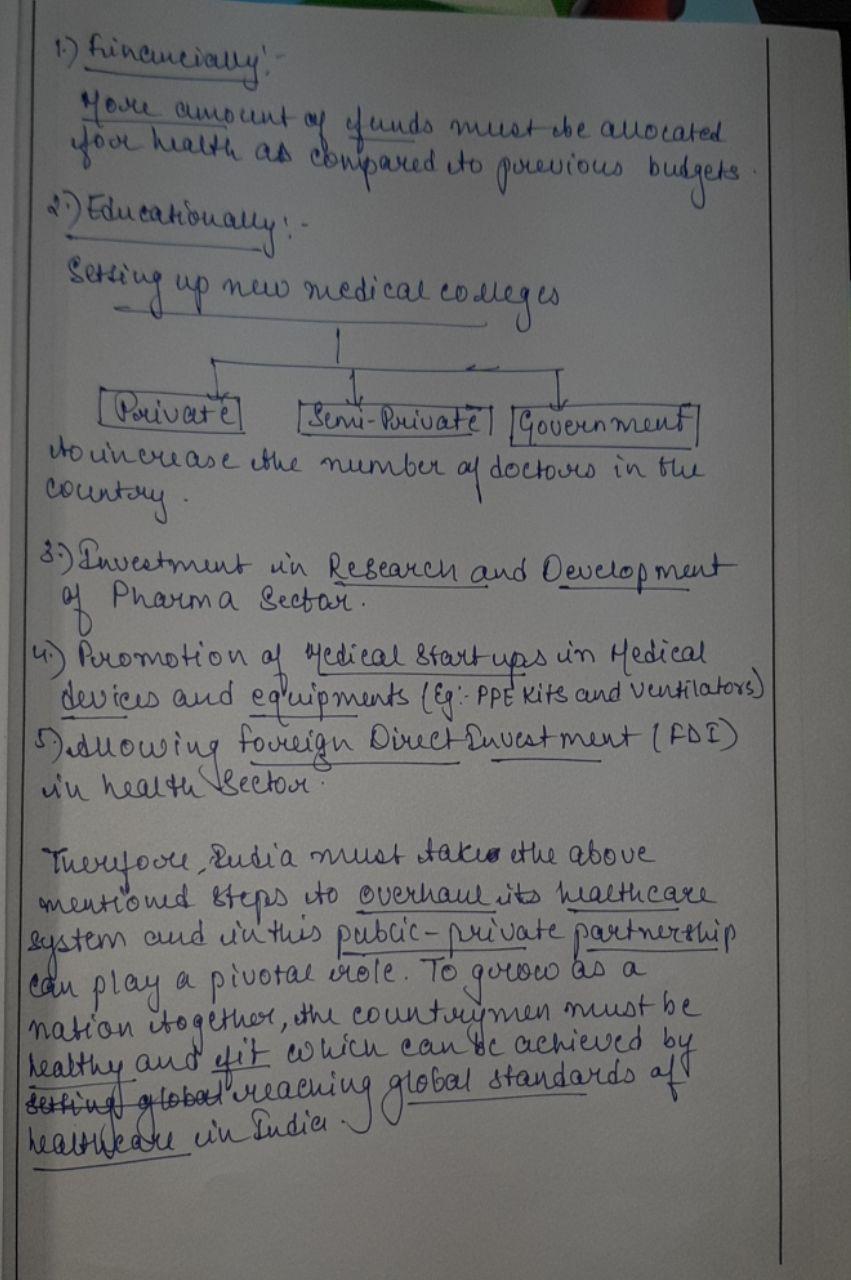 1.) Financially:-
More amount of funds must be allocated
for health as compared to previous budgets.
2.) Educationally:-
Setting up new medical colleges
Private Semi-Private Government
to increase the number of doctors in the
country.
3.) Investment in Research and Development
of Pharma Sector.
4.) Promotion of Medical Startups in Medical
devices and equipments (Eg:- PPE Kits and Ventilators)
5.) Allowing Foreign Direct Investment (FDI)
in health Sector.
Therefore, India must take the above
mentioned steps to overhaul its healthcare
system and in this public-private partnership
can play a pivotal role. To grow as a
nation together, the countrymen must be
healthy and fit which can be achieved by
setting global reaching global standards of
healthcare in India.